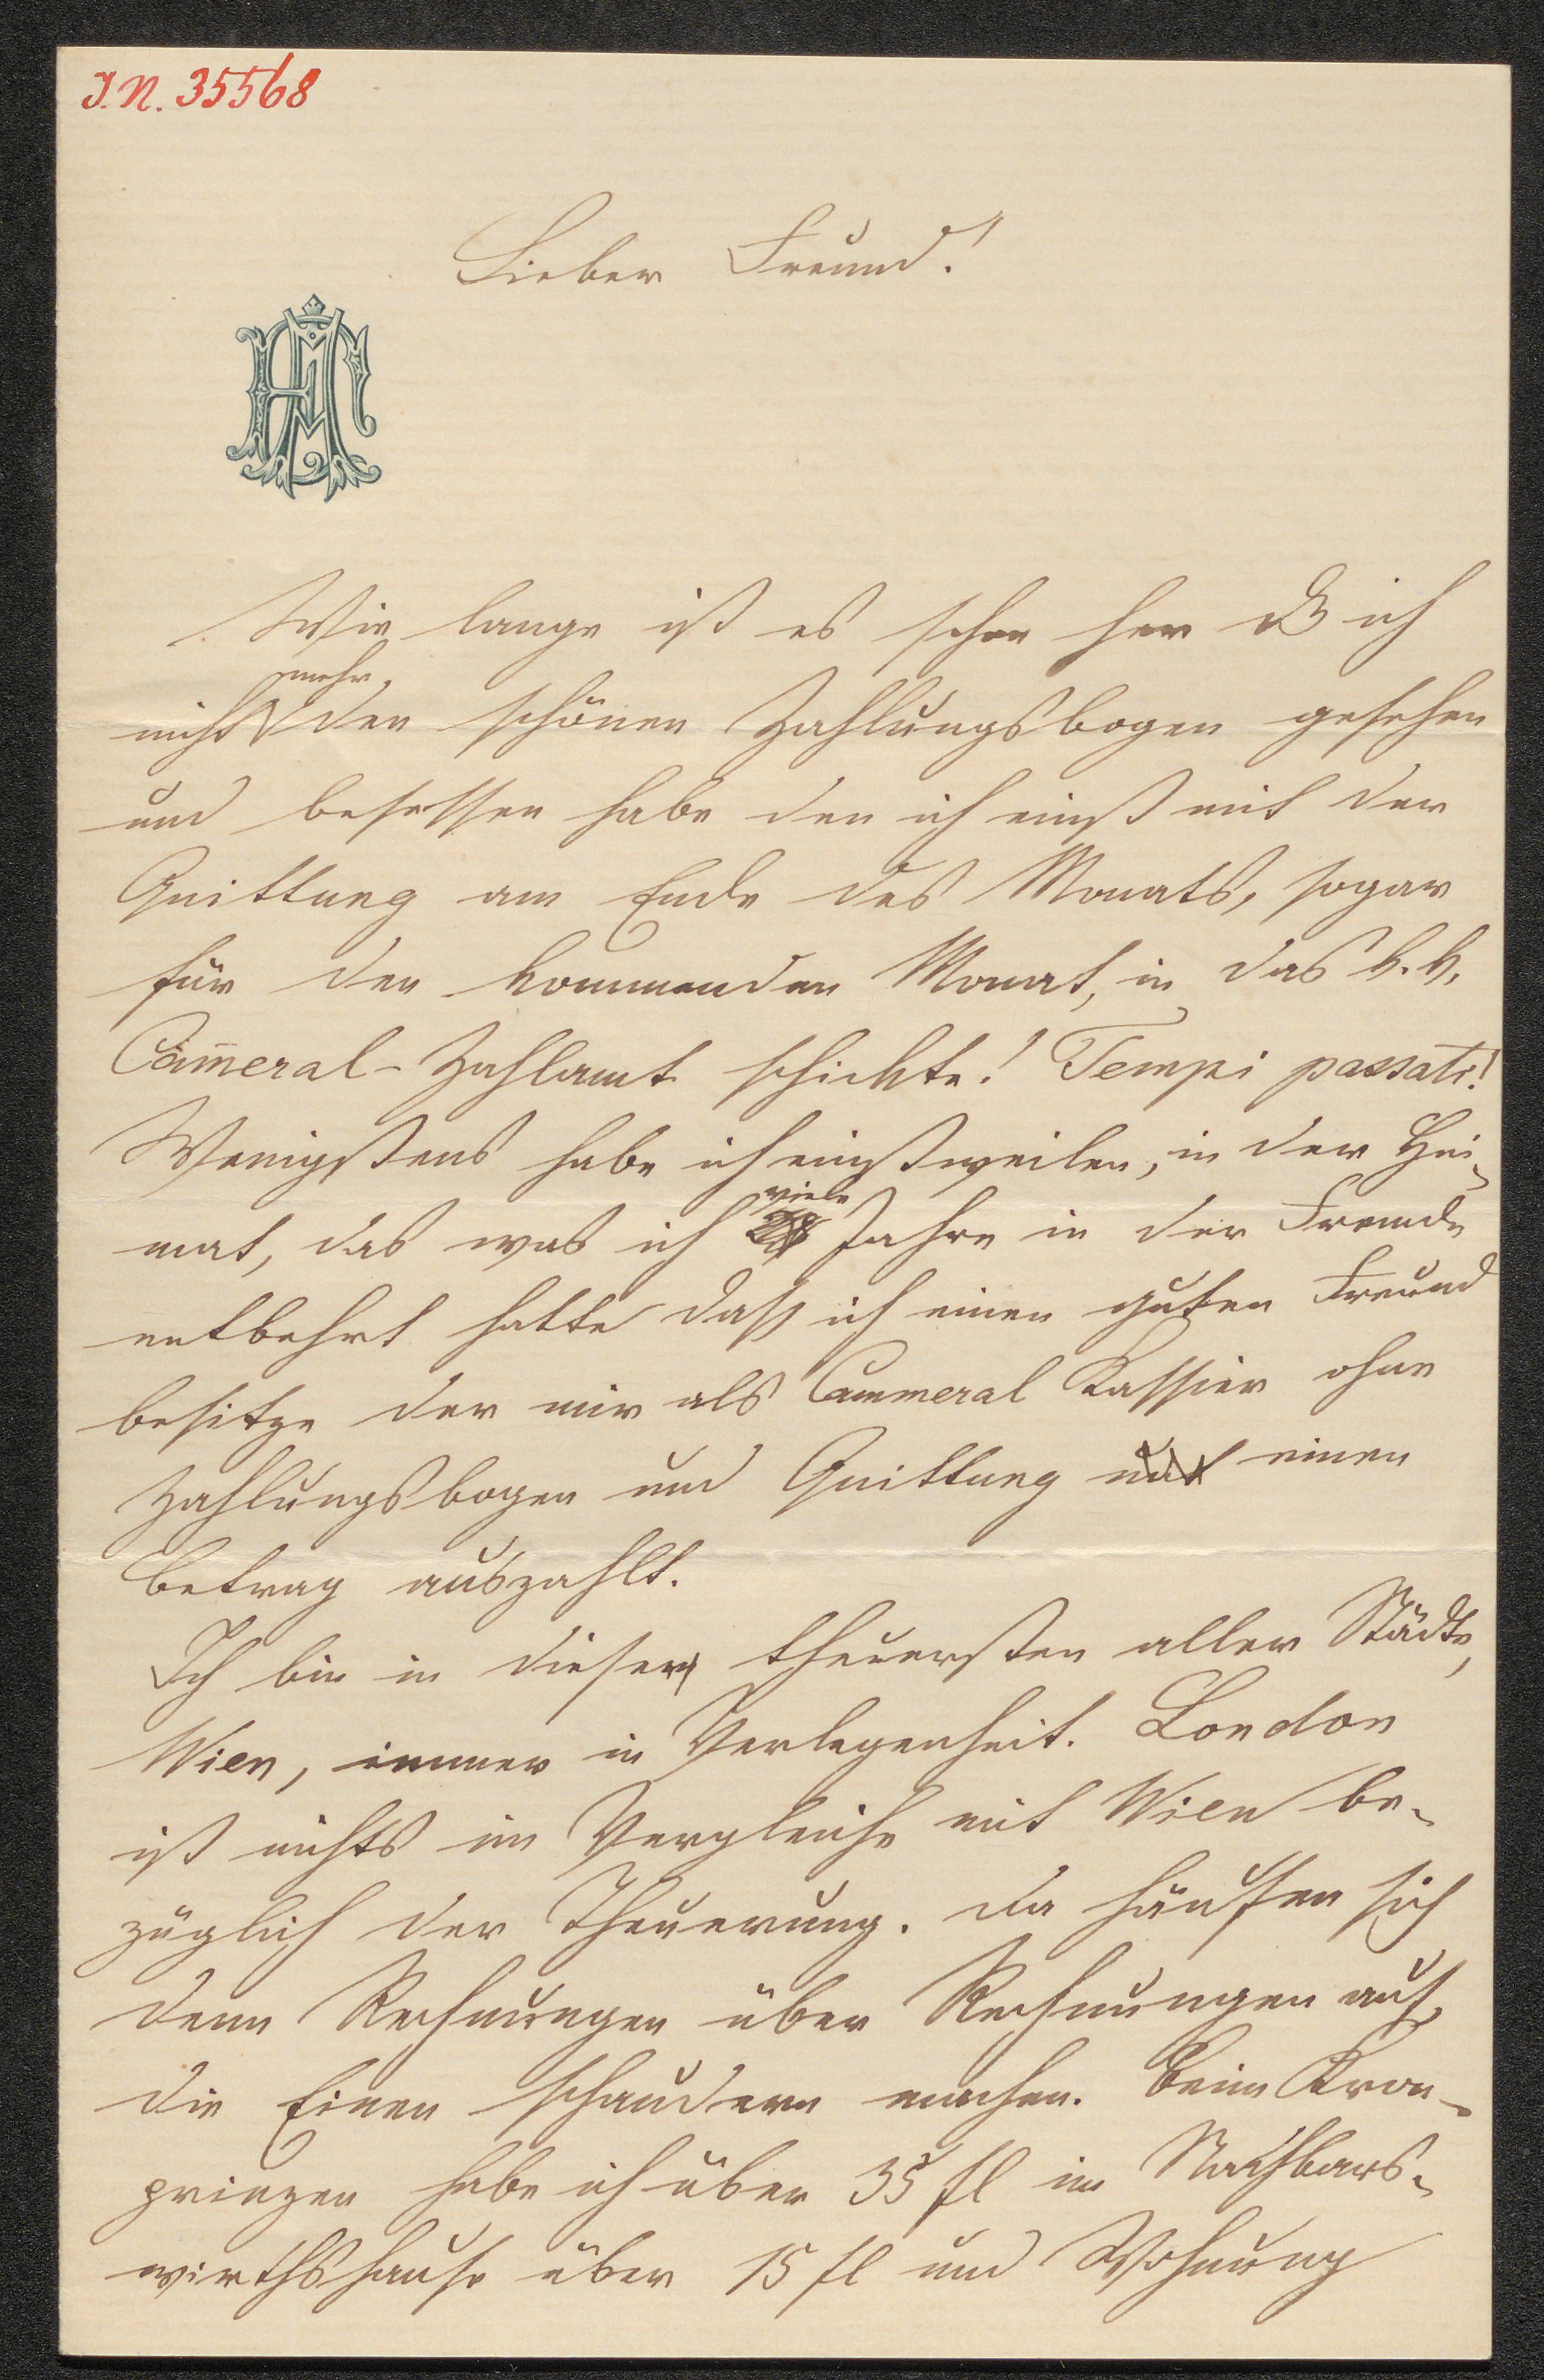 I.N. 35568
Lieber Freund!
Wie lange ist es schon her daß ich
mehr
nicht den schönen Zahlungsbogen gesehen
und besessen habe den ich einst mit der
Quittung am Ende des Monats, sogar
für den kommenden Monat, in das k. k.
Cam̄eral-Zahlamt schickte! Tempi passati!
Wenigstens habe ich einstweilen, in der Hei-
viele
mat, das was ich Jahre in der Fremde
entbehrt hatte daß ich einen guten Freund
besitze der mir als Cammeral Kassier ohne
Zahlungsbogen und Quittung einen
Betrag auszahlt.
Ich bin in dieser theuersten aller Städte,
Wien, immer in Verlegenheit. London
ist nichts im Vergleiche mit Wien be-
züglich der Theuerung. Da häufen sich
denn Rechnungen über Rechnungen auf,
die Einen schaudern machen. Beim Kron-
prinzen habe ich über 35 fl im Nachbars-
wirthshause über 15 fl und Wohnung